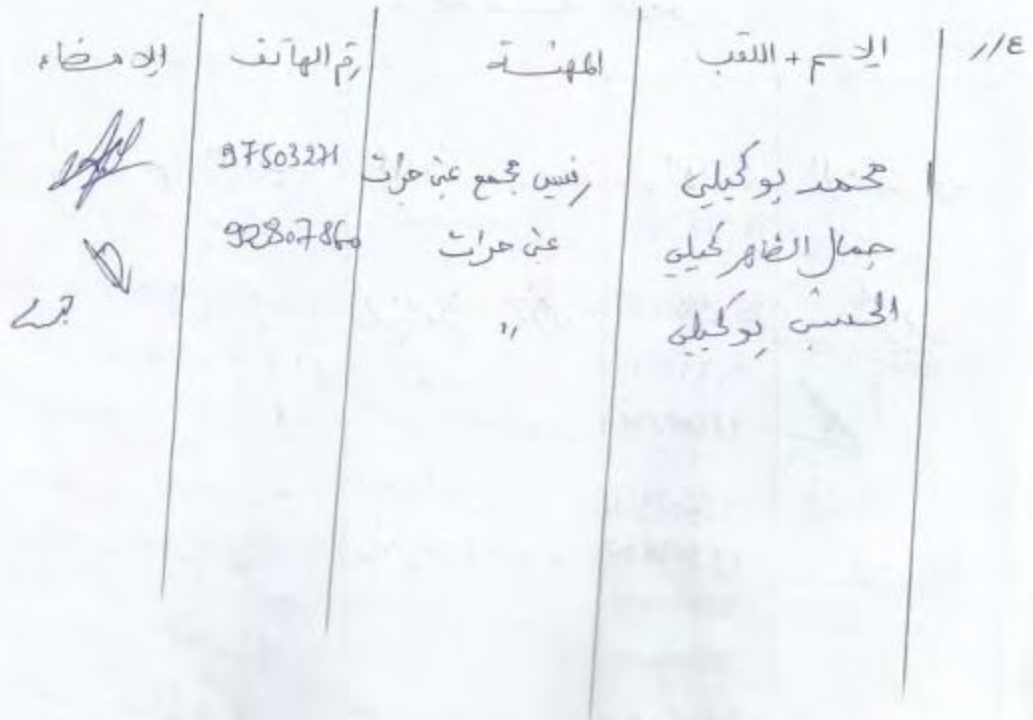 ع// الاسم + اللقب المهنـــة رقم الهاتف الامضاء
محمد بوكيلي رئيس مجمع عين حرات 97503271
جمال الظاهر كيلي عين حرات 92807860
بوكيلي "